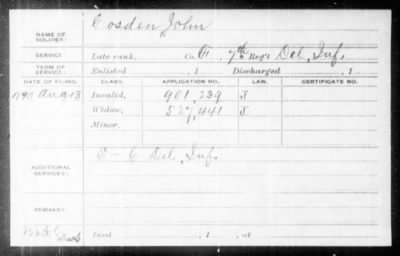 NAME OF SOLDIER: Cosden, John
SERVICE: Late rank, Co. G, 7th Reg't Del. Inf.
TERM OF SERVICE: Enlisted , 1 Discharged , 1
DATE OF FILING. CLASS. APPLICATION NO. LAW. CERTIFICATE NO.
Invalid, 901,239 J
Widow, 527,441 J
Minor,
ADDITIONAL SERVICES: E - 6 Del. Inf.
REMARKS:
Died , 1 , at